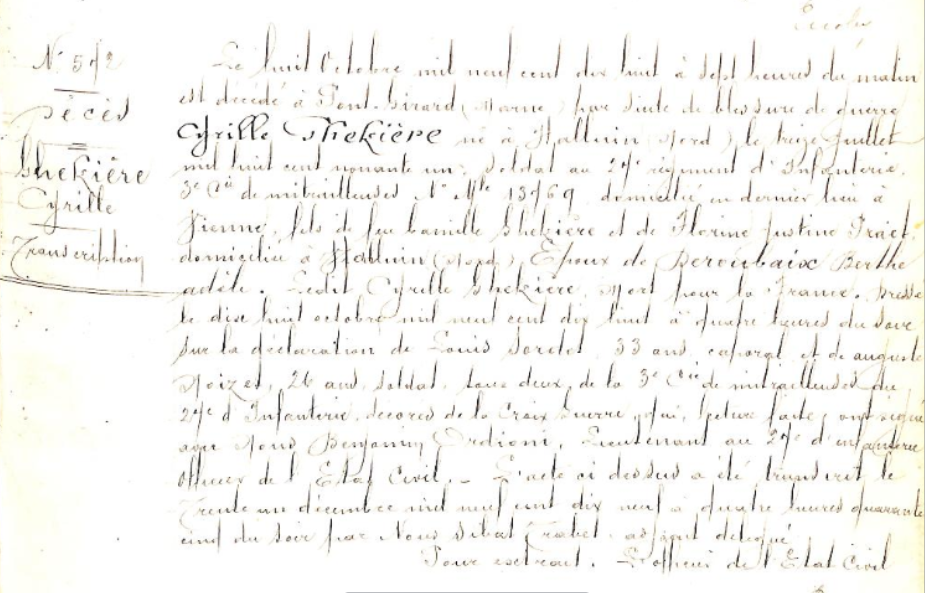 N° 592
Décès
Thekière
Cyrille
Transcription
Le huit Octobre mil neuf cent dix huit à sept heures du matin
est décédé à Pont-Givard (Marne) par suite de blessure de guerre
Cyrille Thekière né à Halluin (Nord) le treize Juillet
mil huit cent nonante un, soldat au 27e régiment d'Infanterie,
3e Cie de mitrailleuses N° Mle 13969, domicilié en dernier lieu à
Vienne, fils de feu Camille Thekière et de Florine Justine
domiciliée à Halluin (Nord), Epoux de Deroubaix Berthe
adèle. Ledit Cyrille Thekière, Mort pour la France. Dressé
le dix huit octobre mil neuf cent dix huit à quatre heures du soir
sur la déclaration de Louis 33 ans, caporal et de auguste
26 ans, soldat, tous deux de la 3e Cie de mitrailleuses du
27e d'Infanterie, décorés de la Croix Guerre, qui, lecture faite, ont signé
avec Nous Benjamin Ordioni, Lieutenant au 27e d'infanterie
Officier de l'Etat Civil. _ L'acte ci dessus a été transcrit le
Trente un décembre mil neuf cent dix neuf à quatre heures quarante
cinq du soir par Nous adjoint délégué
Pour extrait. L'officier de l'Etat Civil